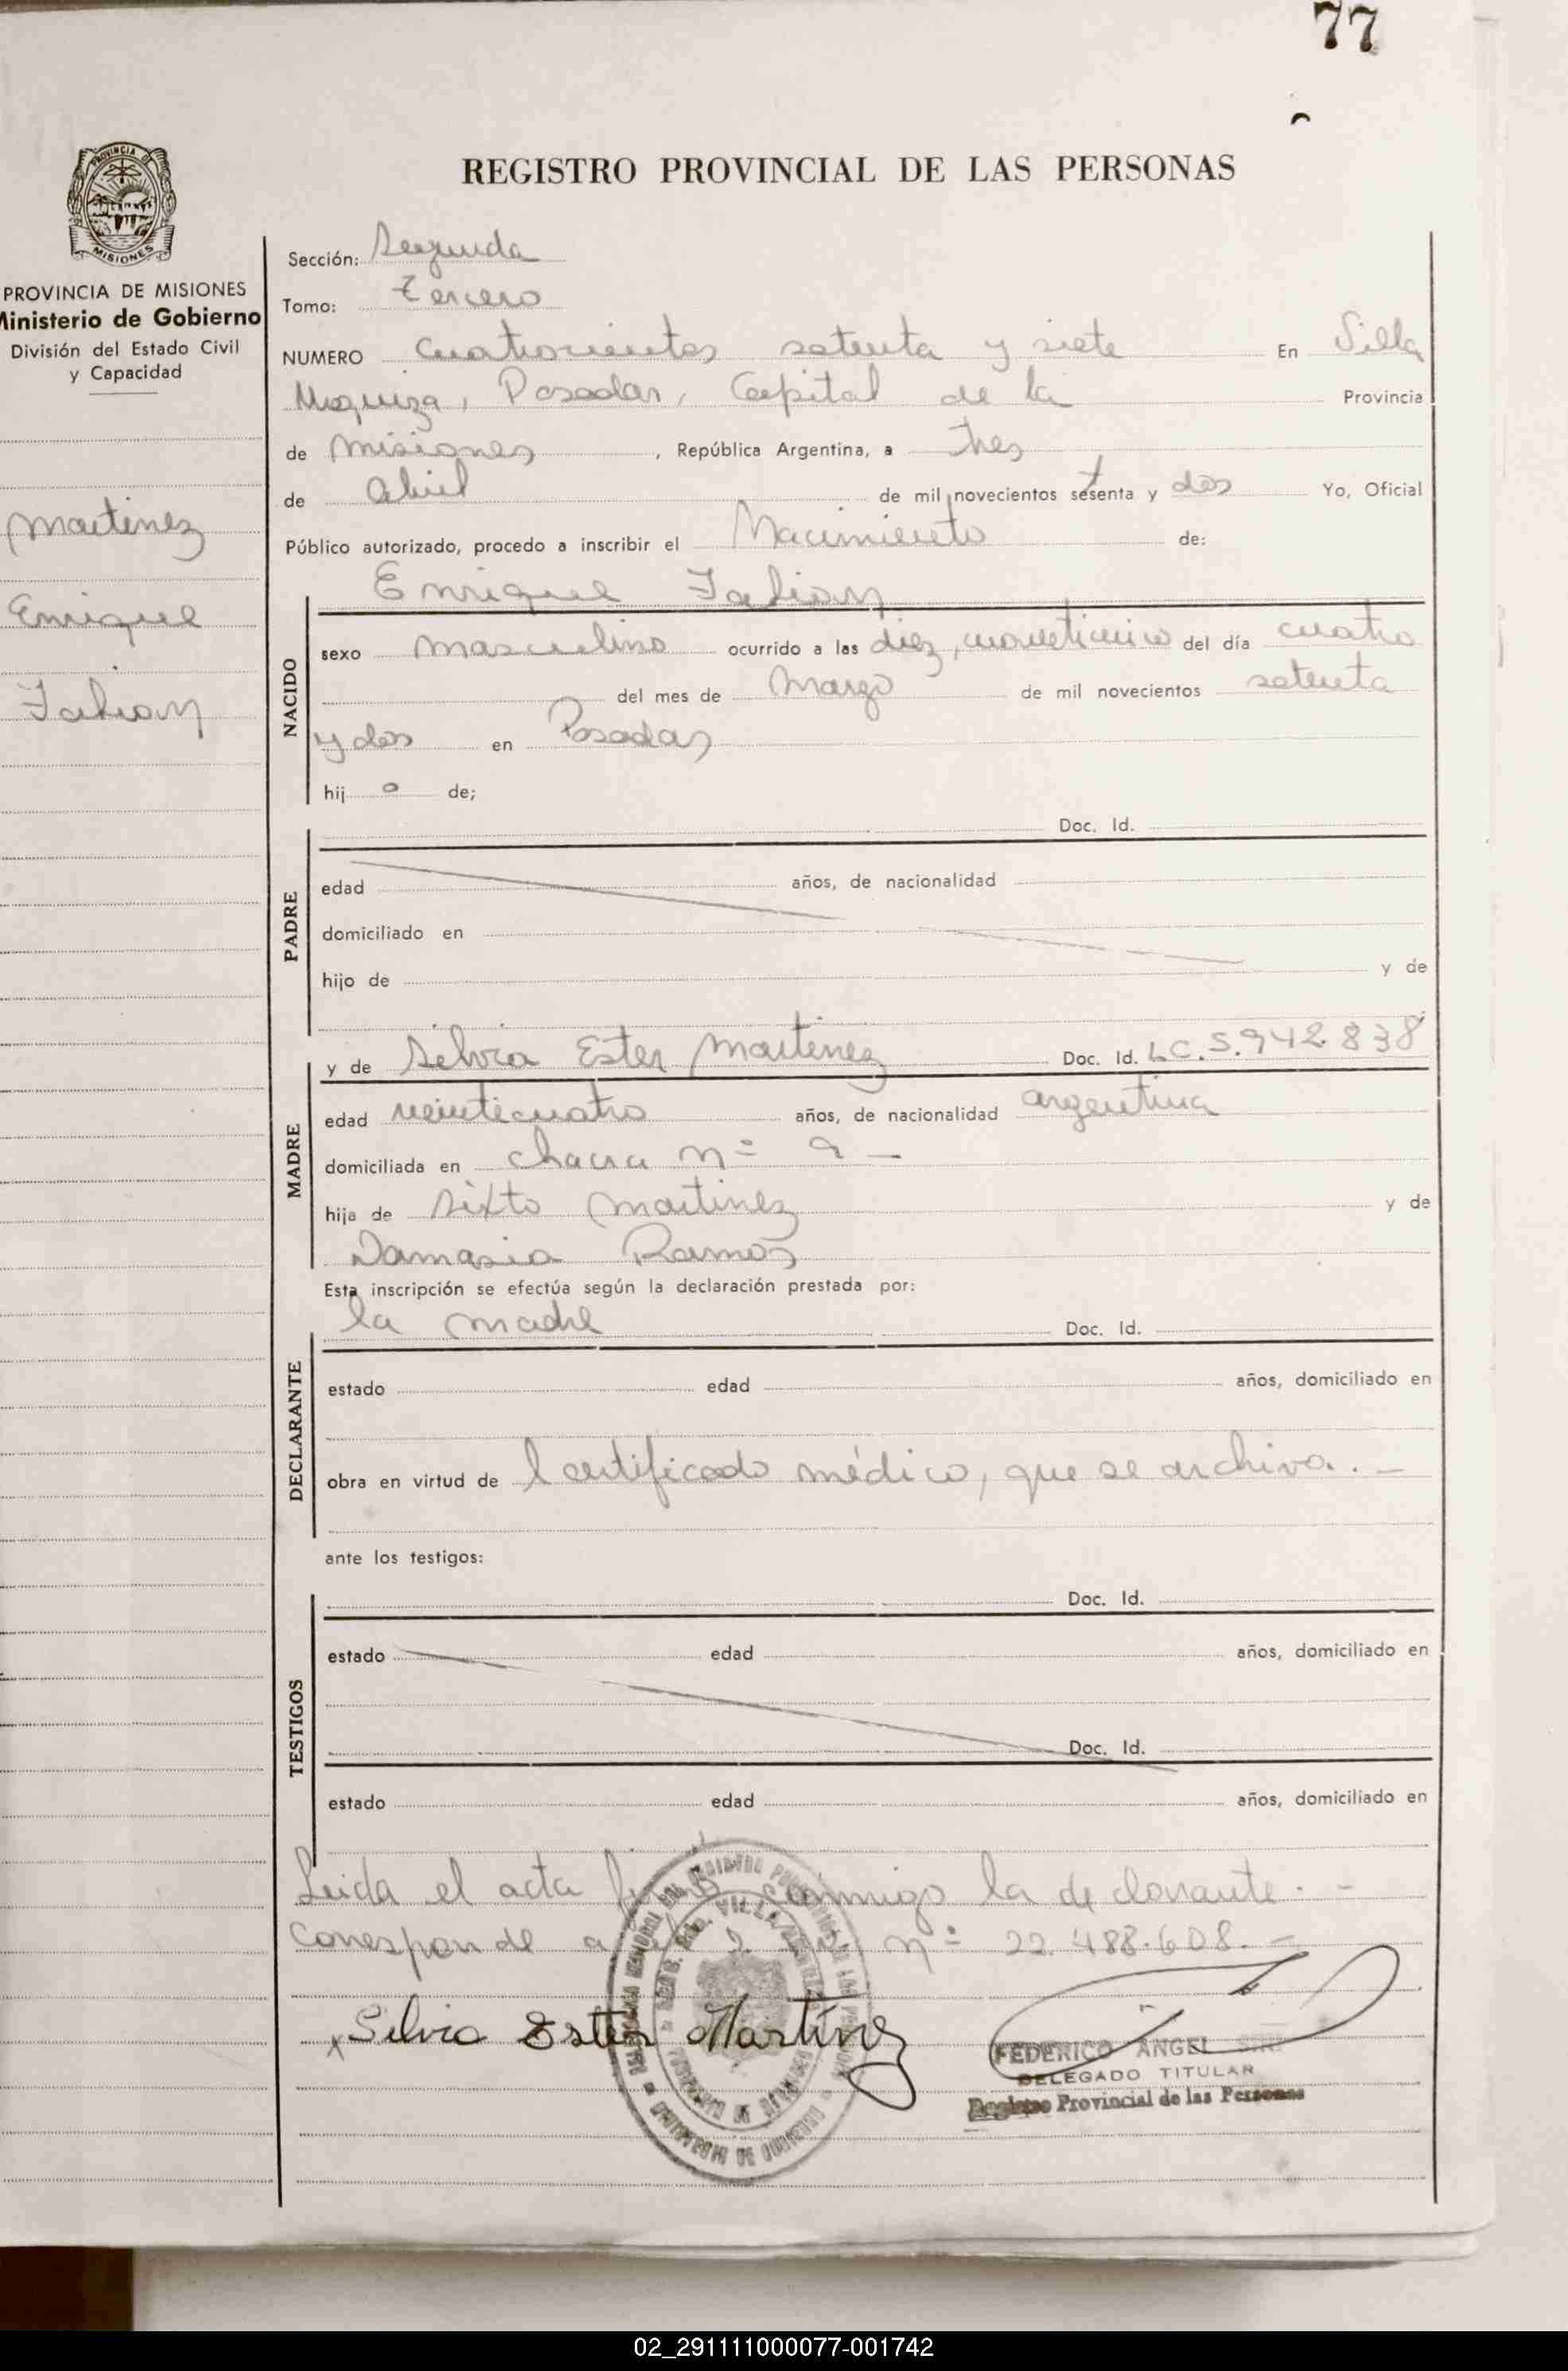 77
REGISTRO PROVINCIAL DE LAS PERSONAS
PROVINCIA DE MISIONES
Ministerio de Gobierno
División del Estado Civil
y Capacidad
Martinez
Enrique
Fabian
Sección: Segunda
Tomo: tercero
NUMERO Cuatrocientos setenta y siete En Villa
Urquiza, Posadas, Capital de la Provincia
de Misiones, República Argentina, a tres
de abril de mil novecientos setenta y dos Yo, Oficial
Público autorizado, procedo a inscribir el Nacimiento de:
Enrique Fabian
NACIDO
sexo masculino ocurrido a las diez, cuarenticinco del día cuatro
del mes de Marzo de mil novecientos setenta
y dos en Posadas
hij o de;
Doc. Id.
PADRE
edad años, de nacionalidad
domiciliado en
hijo de y de
y de Silvia Ester Martinez Doc. Id. L.C. 5.942.838
MADRE
edad veinticuatro años, de nacionalidad argentina
domiciliada en chacra nº 9 —
hija de Sixto Martinez y de
Damasia Ramos
Esta inscripción se efectúa según la declaración prestada por:
la madre Doc. Id.
DECLARANTE
estado edad años, domiciliado en
obra en virtud de l certificado médico, que se archiva. —
ante los testigos:
Doc. Id.
TESTIGOS
estado edad años, domiciliado en
Doc. Id.
estado edad años, domiciliado en
Leida el acta firmó conmigo la declarante. —
Corresponde a nº 22.488.608. —
Silvia Ester Martínez
FEDERICO ANGEL
DELEGADO TITULAR
Registro Provincial de las Personas
02_291111000077-001742